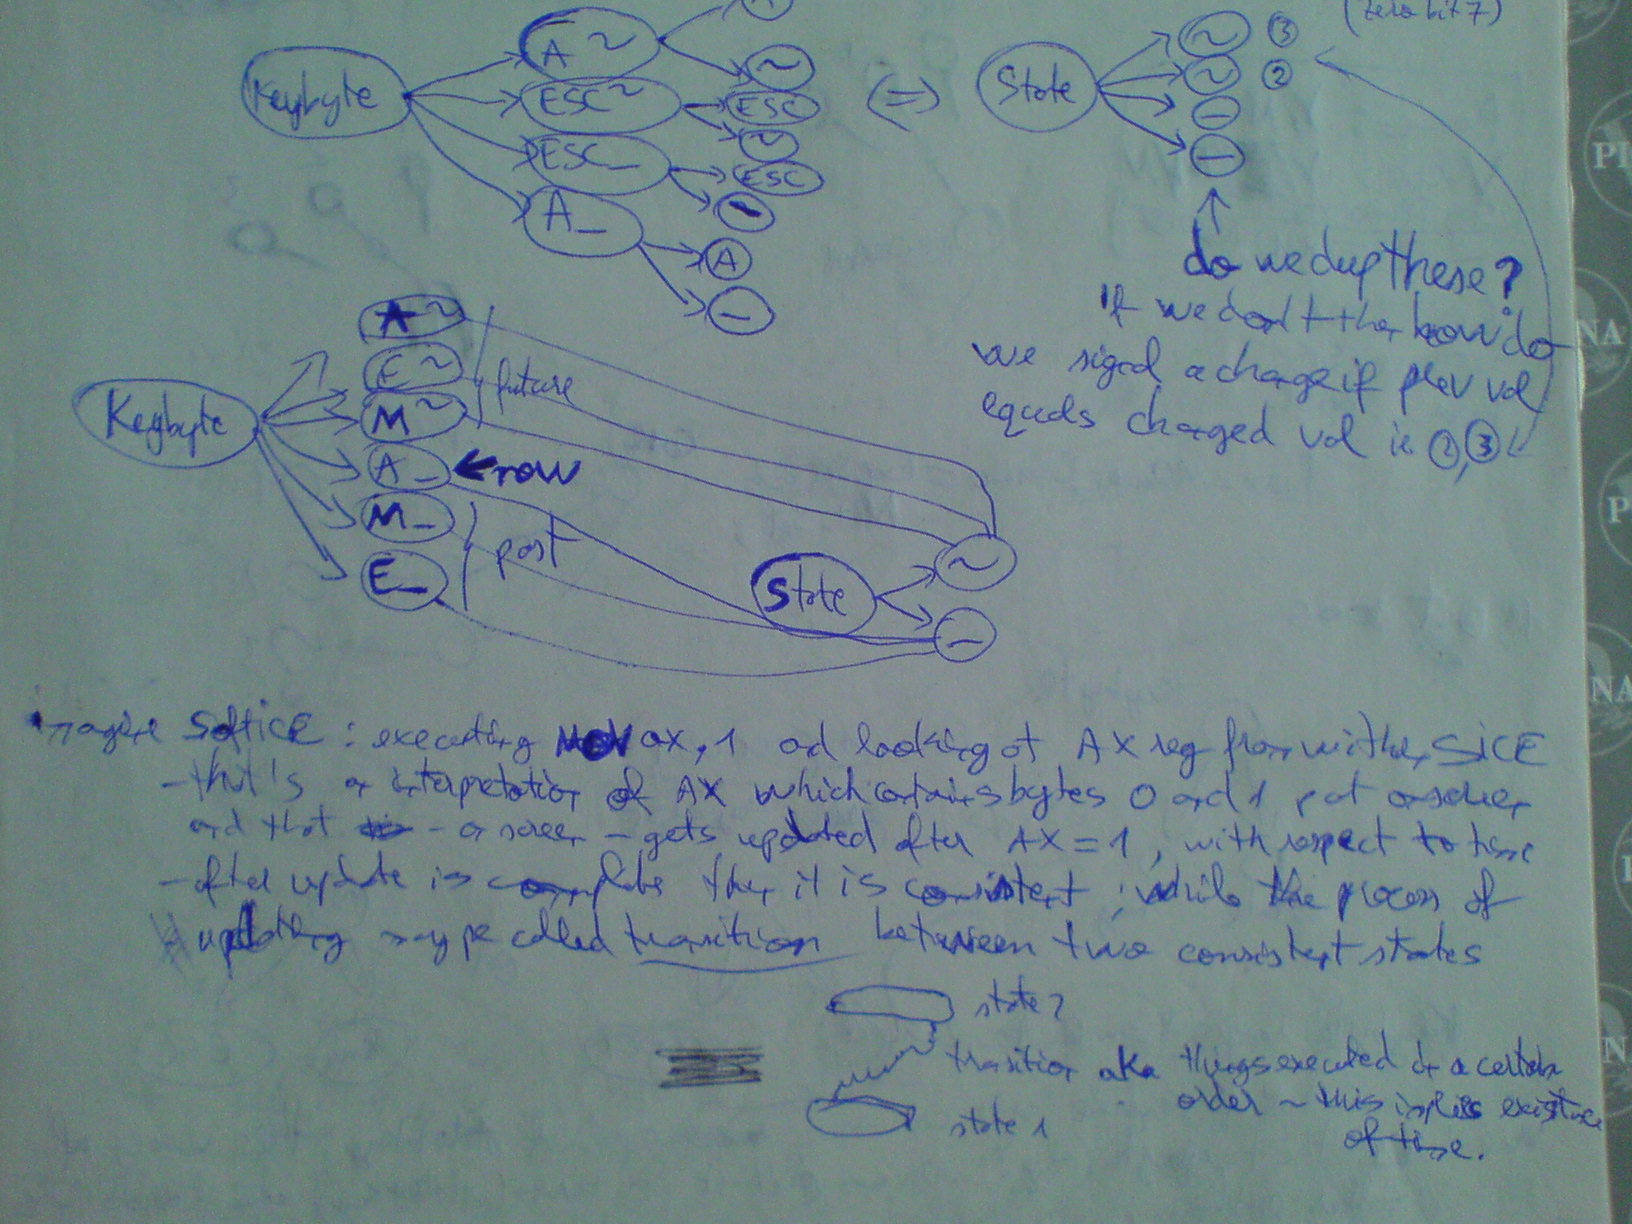 (zero bit 7)
A
Keybyte
A ~
~
ESC ~
ESC
~
ESC _
ESC
–
A _
A
–
(=)
State
~ 3
~ 2
–
–
do we dup these?
If we don't then how do
we signal a change if prev val
equals changed val ie 2,3
Keybyte
A ~
E ~
M ~
future
A _ ← now
M _
E _
past
State
~
–
Imagine SoftICE : executing MOV ax, 1 and looking at AX reg from within SICE
- that's an interpretation of AX which contains bytes 0 and 1 put onscreen
and that - on screen - gets updated after AX = 1, with respect to time
- after update is complete then it is consistent ; while the process of
updating may be called transition between two consistent states
state 2
transition aka things executed in a certain
order - this implies existence
of time.
state 1
PL
NA
P
NA
N